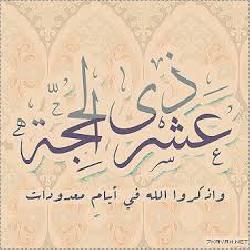 عشر ذي الحجة
واذكروا الله في أيام معدودات